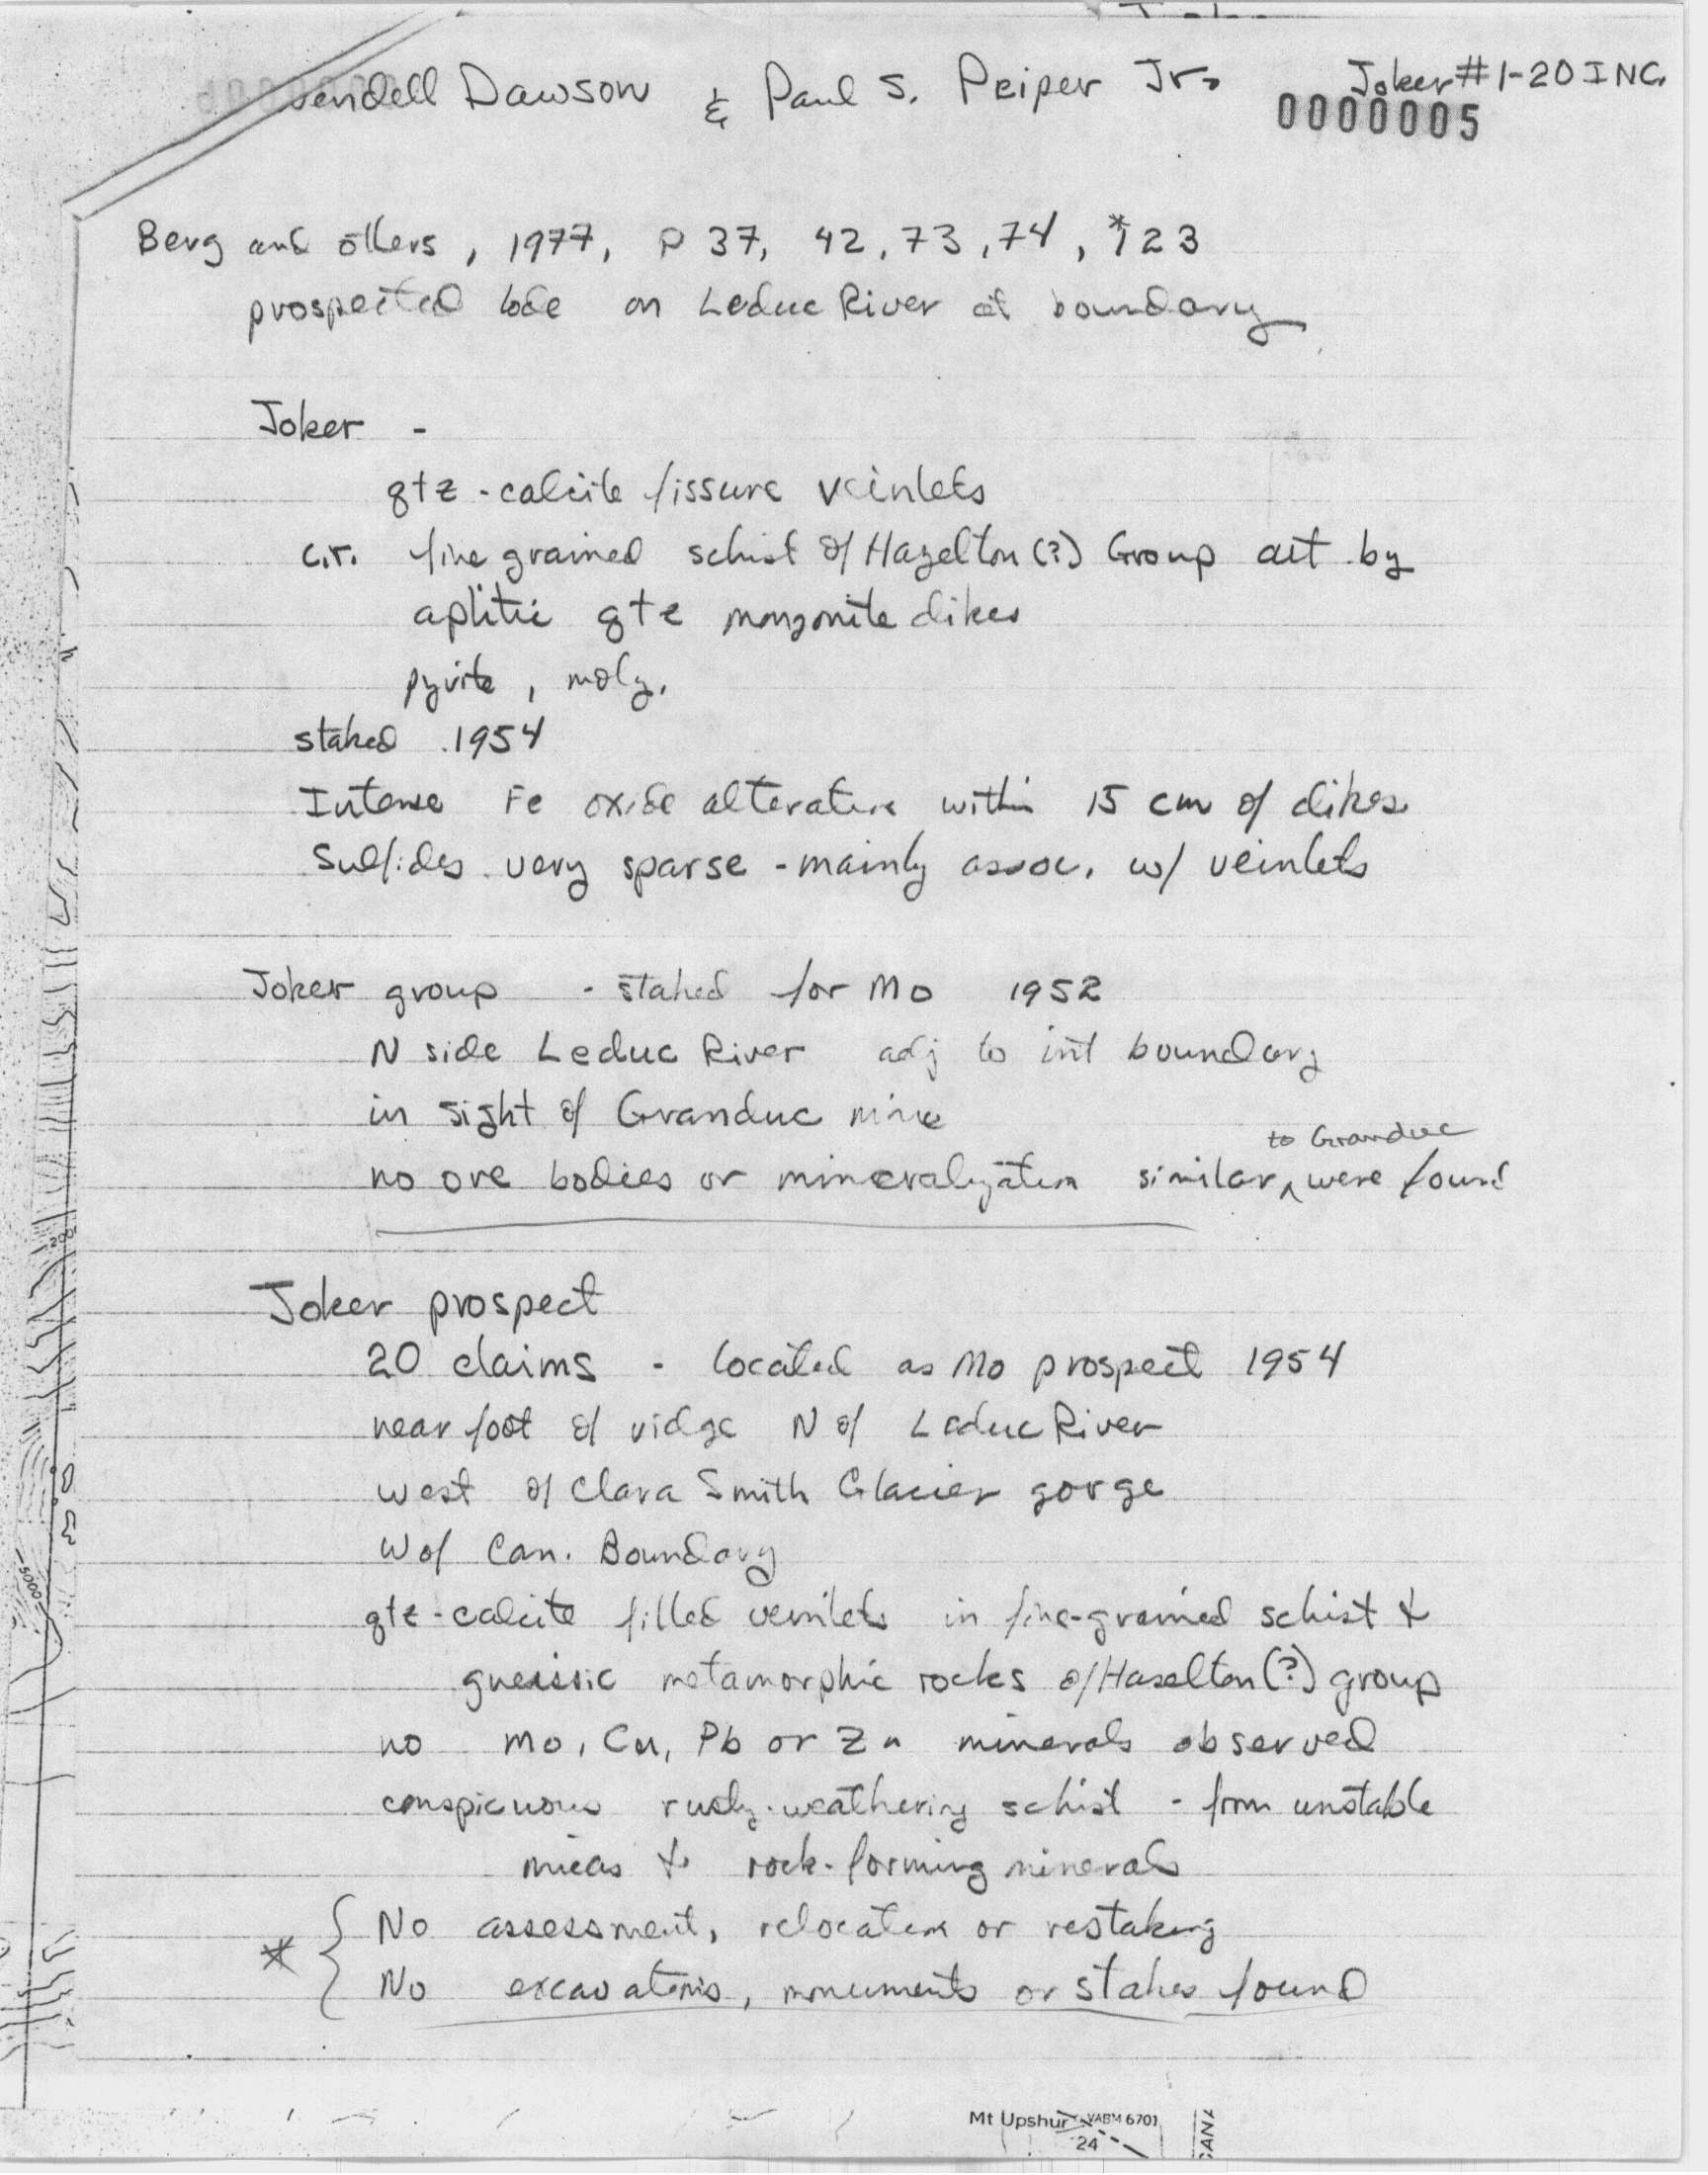 Wendell Dawson & Paul S. Peiper Jr. Joker #1-20 INC.
0000005
Berg and others, 1977, p 37, 42, 73, 74, *123
prospected lode on Leduc River at boundary
Joker -
qtz-calcite fissure veinlets
c.r. fine grained schist of Hazelton (?) Group alt by
aplitic qtz monzonite dikes
pyrite, moly.
staked 1954
Intense Fe oxide alteration within 15 cm of dikes.
Sulfides very sparse - mainly assoc. w/ veinlets
Joker group - staked for Mo 1952
N side Leduc River adj to int boundary
in sight of Granduc mine
no ore bodies or mineralization similar ^ to Granduc were found
Joker prospect
20 claims - located as Mo prospect 1954
near foot of ridge N of Leduc River
west of Clara Smith Glacier gorge
W of Can. Boundary
qtz-calcite filled veinlets in fine-grained schist &
gneissic metamorphic rocks of Haselton (?) group
no Mo, Cu, Pb or Zn minerals observed
conspicuous rusty-weathering schist - from unstable
micas & rock-forming minerals
* { No assessment, relocation or restaking
No excavations, monuments or stakes found
200
5000
Mt Upshur VABM 6701
24
CANA